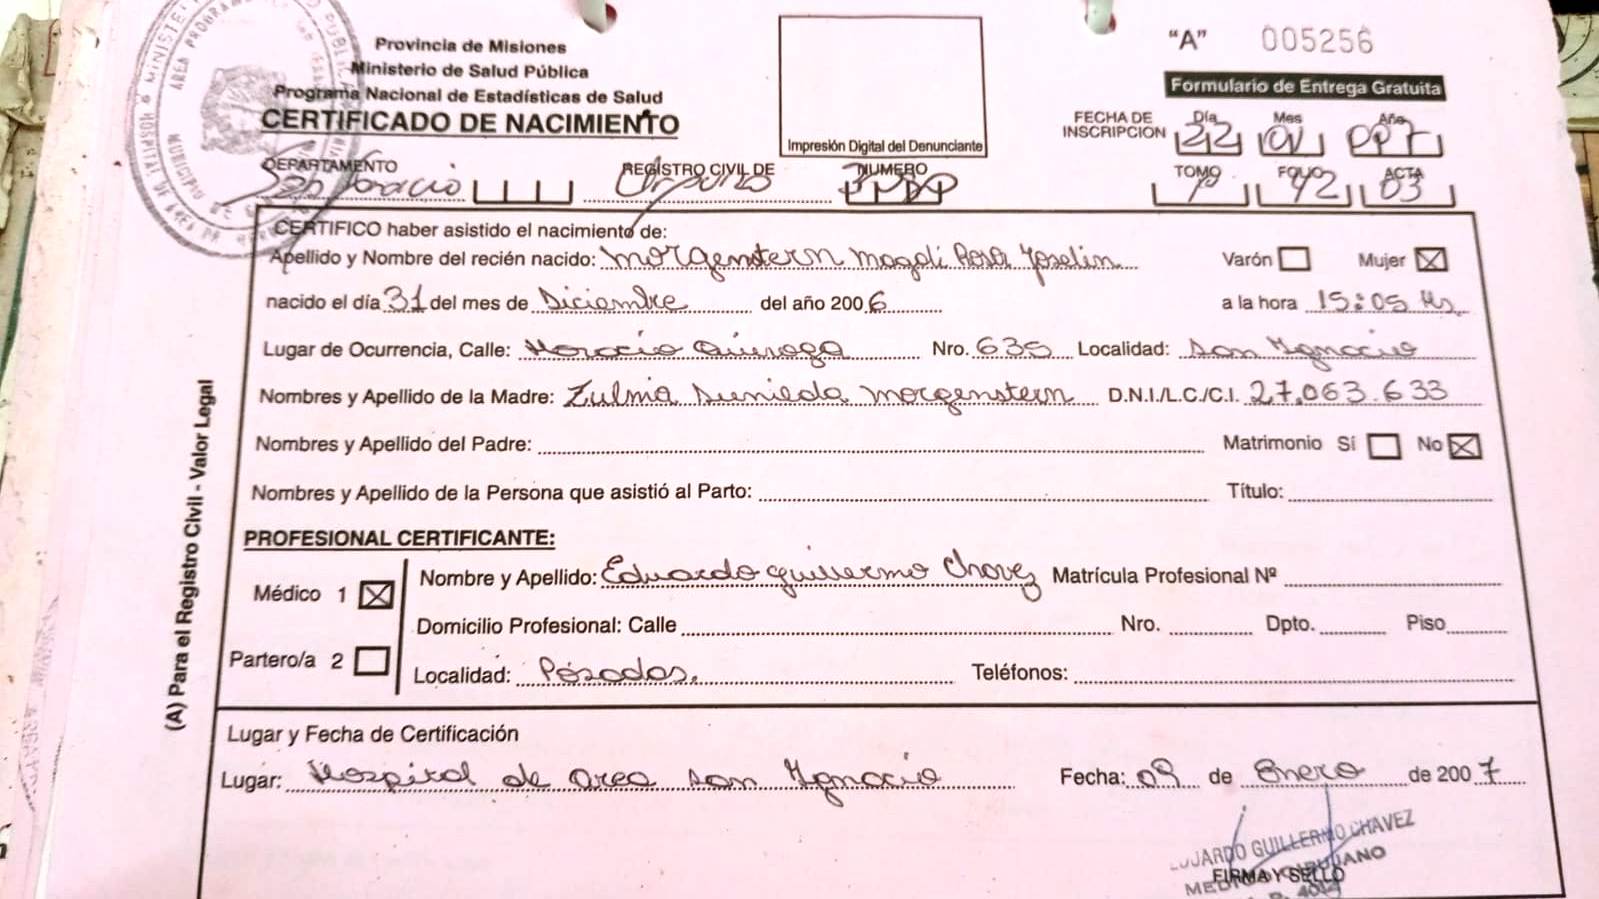 Provincia de Misiones
Ministerio de Salud Pública
Programa Nacional de Estadísticas de Salud
CERTIFICADO DE NACIMIENTO
Impresión Digital del Denunciante
"A" 005256
Formulario de Entrega Gratuita
FECHA DE INSCRIPCION Día 22 Mes 01 Año
DEPARTAMENTO San Ignacio REGISTRO CIVIL DE NUMERO
TOMO 1 FOLIO 92 ACTA 03
CERTIFICO haber asistido el nacimiento de:
Apellido y Nombre del recién nacido: Morgenstern Magalí Rosa Joselin Varón Mujer X
nacido el día 31 del mes de Diciembre del año 2006 a la hora 15:05 Hs.
Lugar de Ocurrencia, Calle: Horacio Quiroga Nro. 635 Localidad: San Ignacio
Nombres y Apellido de la Madre: Zulma Morgenstern D.N.I./L.C./C.I. 27.063.633
Nombres y Apellido del Padre: Matrimonio Sí No X
Nombres y Apellido de la Persona que asistió al Parto: Título:
PROFESIONAL CERTIFICANTE:
Médico 1 X
Partero/a 2
Nombre y Apellido: Eduardo Guillermo Chavez Matrícula Profesional Nº
Domicilio Profesional: Calle Nro. Dpto. Piso
Localidad: Posadas. Teléfonos:
Lugar y Fecha de Certificación
Lugar: Hospital de area San Ignacio Fecha: 09 de Enero de 2007
(A) Para el Registro Civil - Valor Legal
EDUARDO GUILLERMO CHAVEZ
MEDICO CIRUJANO
FIRMA Y SELLO